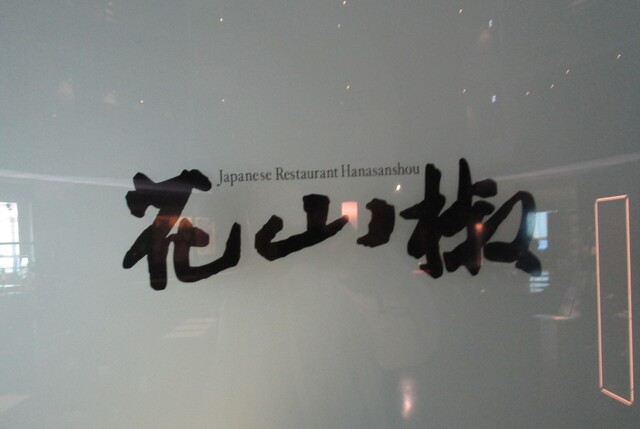 Japanese Restaurant Hanasanshou
花山椒